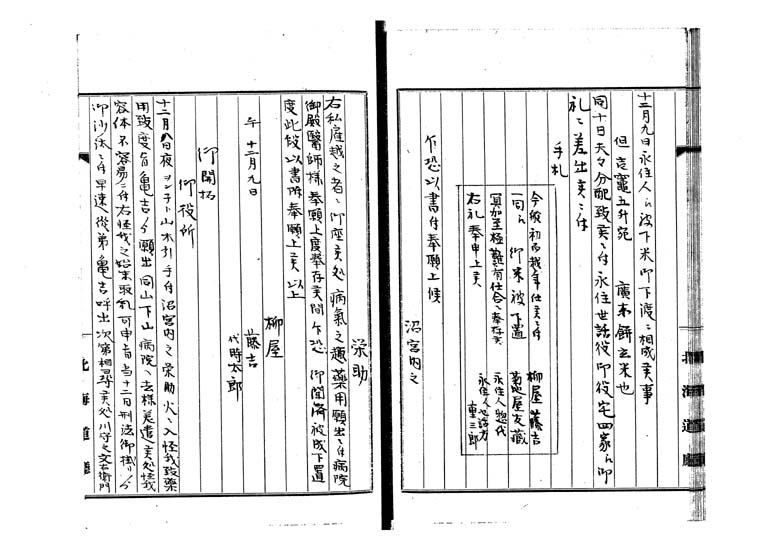 十二月九日永住人ニ被下米御下渡ニ相成候事
但壱竈五升宛 廣木餅玄米也
同十日夫々分配致候ニ付永住世話役御役宅四家ニ御
礼ニ差出候ニ付
手札
今般初而越年仕候ニ付
一同ニ御米被下置
冥加至極難有仕合ニ奉存候
右礼奉申上候
柳屋藤吉
菊屋友蔵
永住人惣代
永住人世話方
重三郎
乍恐以書付奉願上候
沼宮内之
栄助
右私雇越之者ニ御座候処病氣之趣薬用願出ニ付病院
御殿醫師様奉願上度奉存候間乍恐御聞済被成下置
度此段以書附奉願上候以上
柳屋
藤吉
代時太郎
午十二月九日
御開拓
御役所
十二月八日夜ヲンチト山木引手付沼宮内之栄助火ニ入怪我致薬
用致度旨亀吉ゟ願出同山下山病院ヘ去様差遣候処怪我
容体不容易ニ付右怪我之始末取糺可申旨当十二日刑法御掛りゟ
御沙汰ニ付早速従弟亀吉呼出次第相尋候処川守之文右衛門
北海道廳
北海道廳